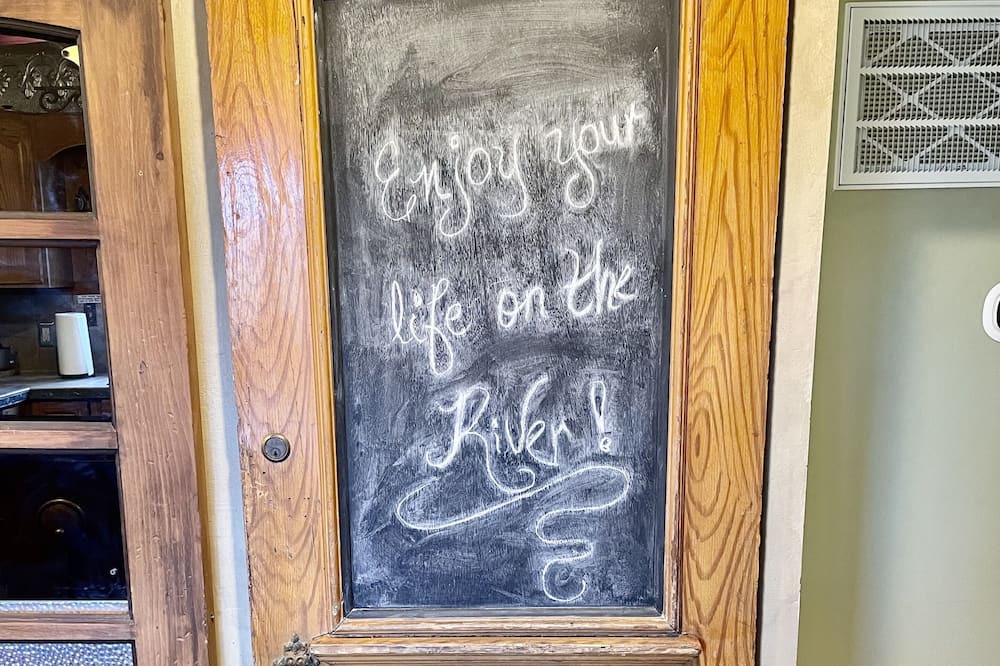 Enjoy your
life on the
River!